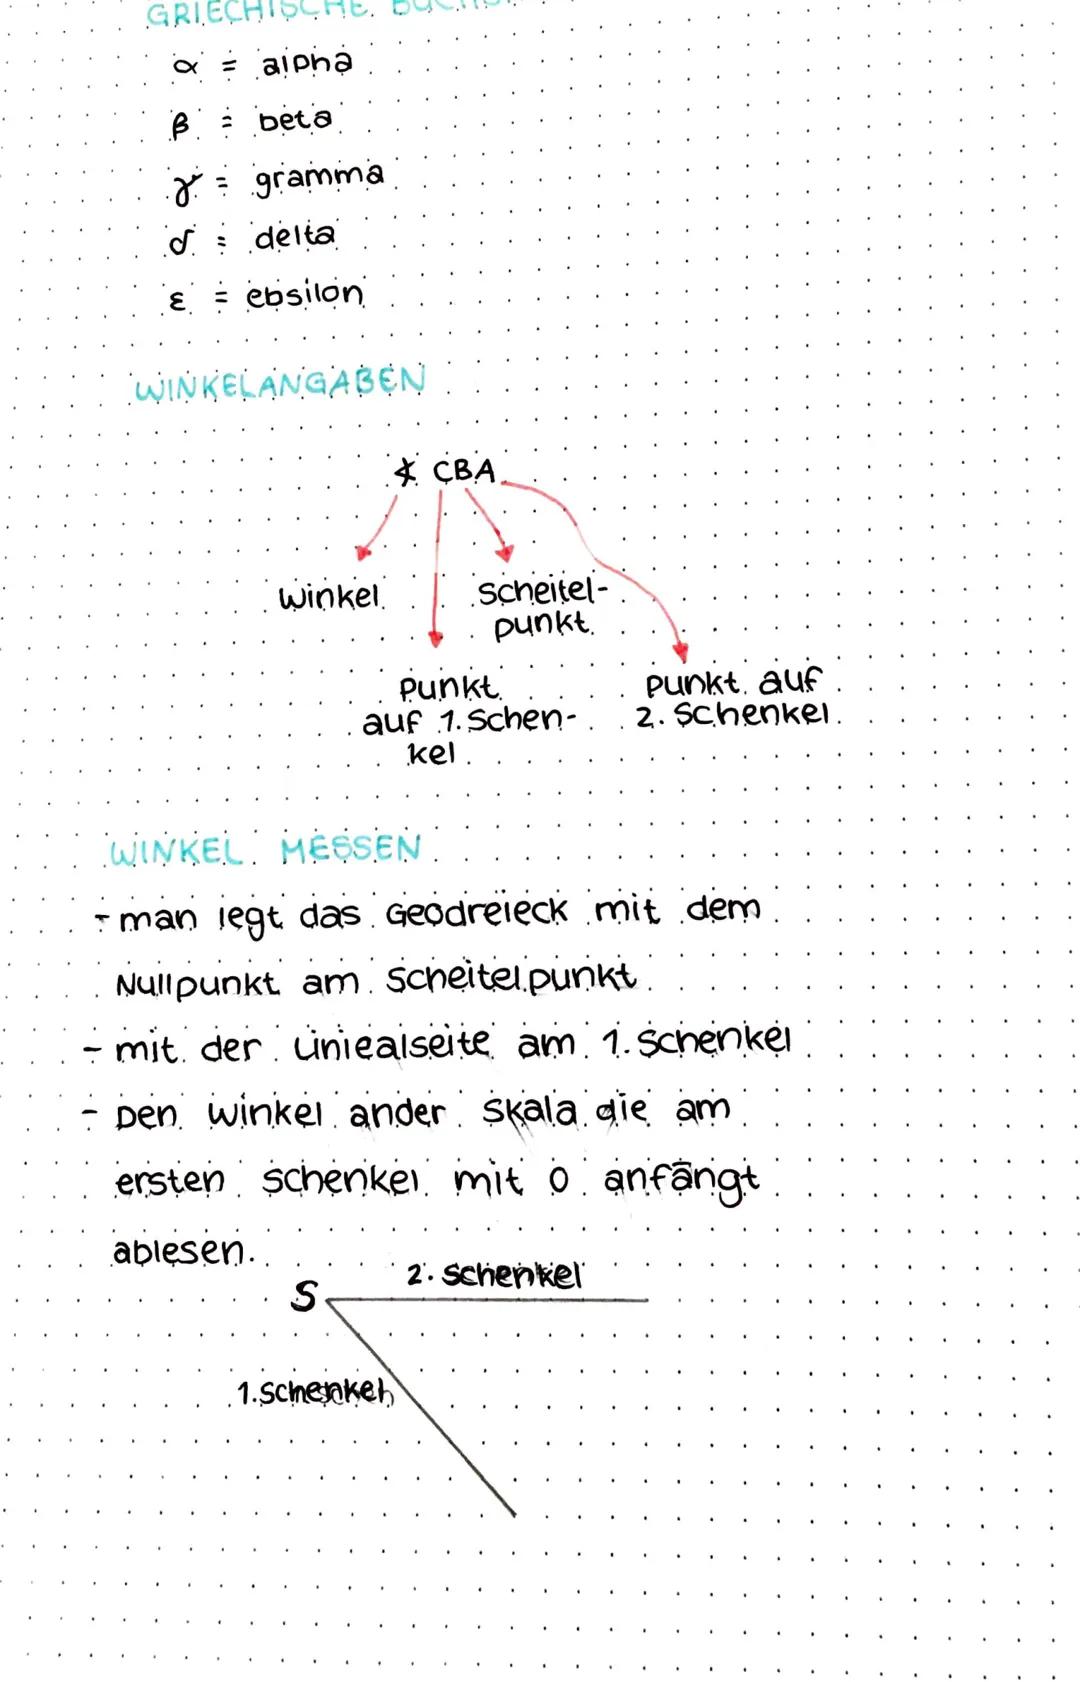 GRIECHISCHE
α = alpha
β = beta
γ = gramma
δ = delta
ε = ebsilon
WINKELANGABEN
∢ CBA
Winkel
Scheitel-
punkt
Punkt
auf 1. Schen-
kel
Punkt auf
2. Schenkel
WINKEL MESSEN
- man legt das Geodreieck mit dem
Nullpunkt am Scheitelpunkt
- mit der Liniealseite am 1. Schenkel
- Den Winkel ander Skala die am
ersten Schenkel mit 0 anfängt
ablesen.
2. Schenkel
S
1. Schenkel